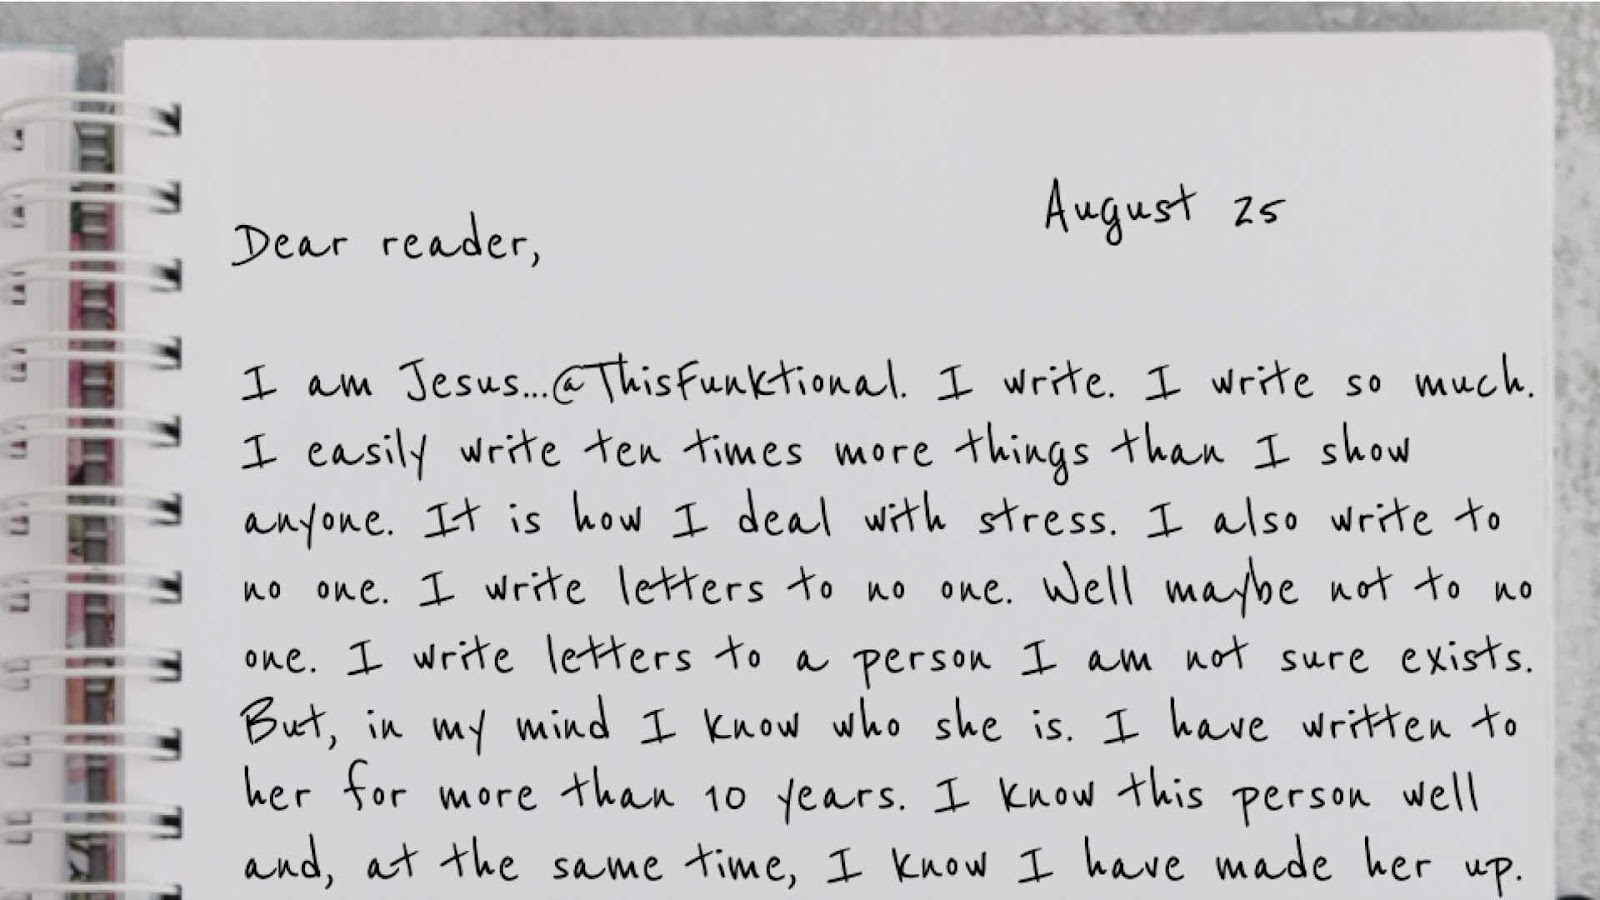 August 25
Dear reader,
I am Jesus...@ThisFunktional. I write. I write so much.
I easily write ten times more things than I show
anyone. It is how I deal with stress. I also write to
no one. I write letters to no one. Well maybe not to no
one. I write letters to a person I am not sure exists.
But, in my mind I know who she is. I have written to
her for more than 10 years. I know this person well
and, at the same time, I know I have made her up.